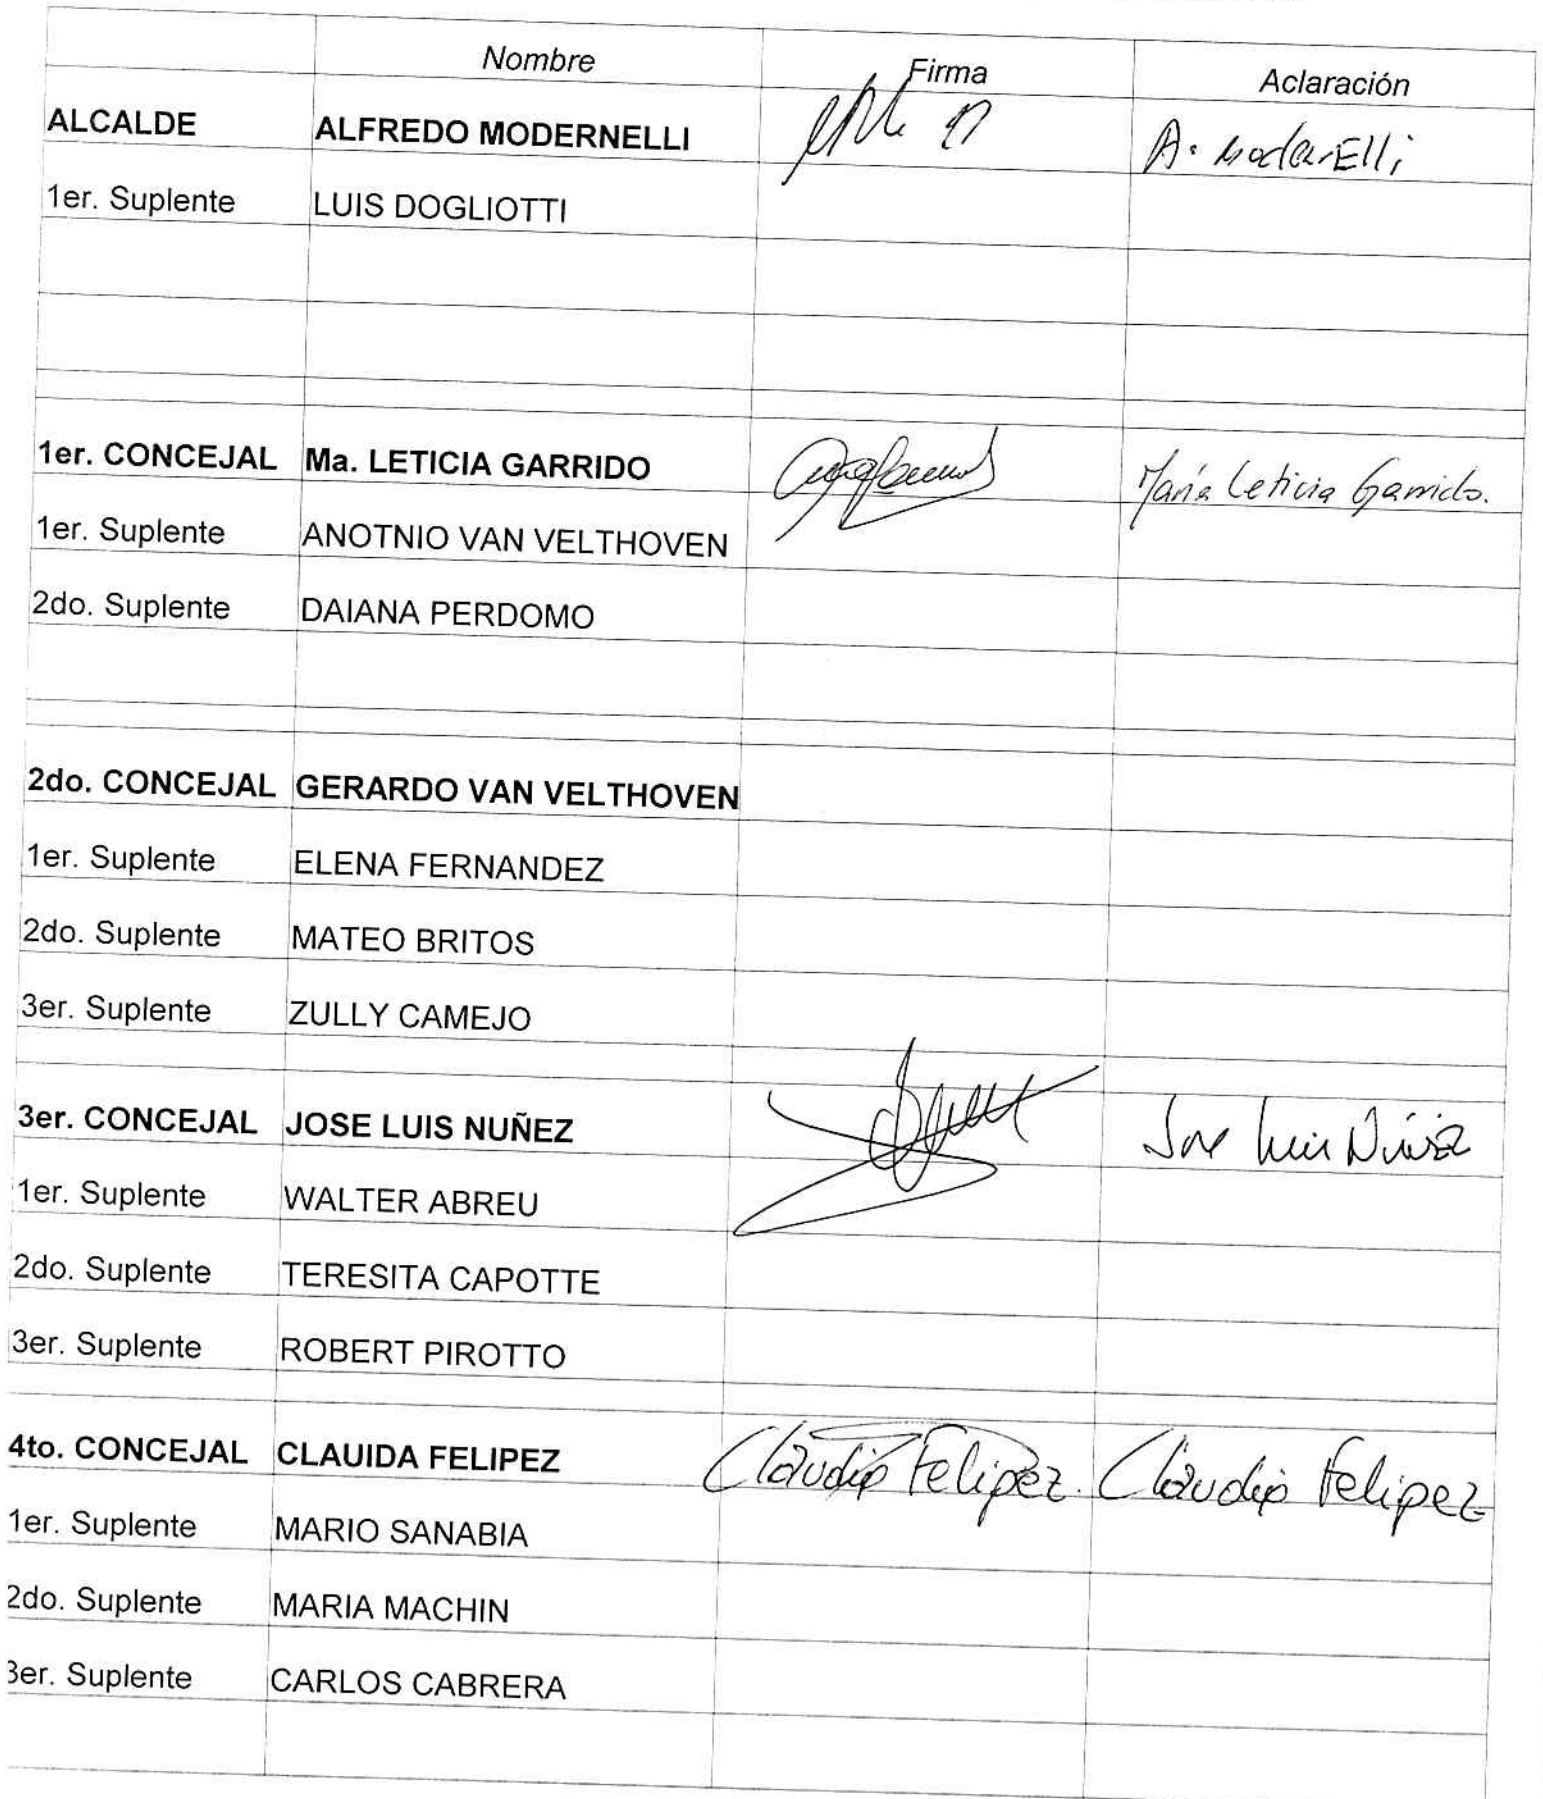 Nombre Firma Aclaración
ALCALDE ALFREDO MODERNELLI A. ModernElli
1er. Suplente LUIS DOGLIOTTI
1er. CONCEJAL Ma. LETICIA GARRIDO María Leticia Garrido.
1er. Suplente ANOTNIO VAN VELTHOVEN
2do. Suplente DAIANA PERDOMO
2do. CONCEJAL GERARDO VAN VELTHOVEN
1er. Suplente ELENA FERNANDEZ
2do. Suplente MATEO BRITOS
3er. Suplente ZULLY CAMEJO
3er. CONCEJAL JOSE LUIS NUÑEZ Jose Luis Núñez
1er. Suplente WALTER ABREU
2do. Suplente TERESITA CAPOTTE
3er. Suplente ROBERT PIROTTO
4to. CONCEJAL CLAUIDA FELIPEZ Claudia Felipez. Claudia Felipez
1er. Suplente MARIO SANABIA
2do. Suplente MARIA MACHIN
3er. Suplente CARLOS CABRERA